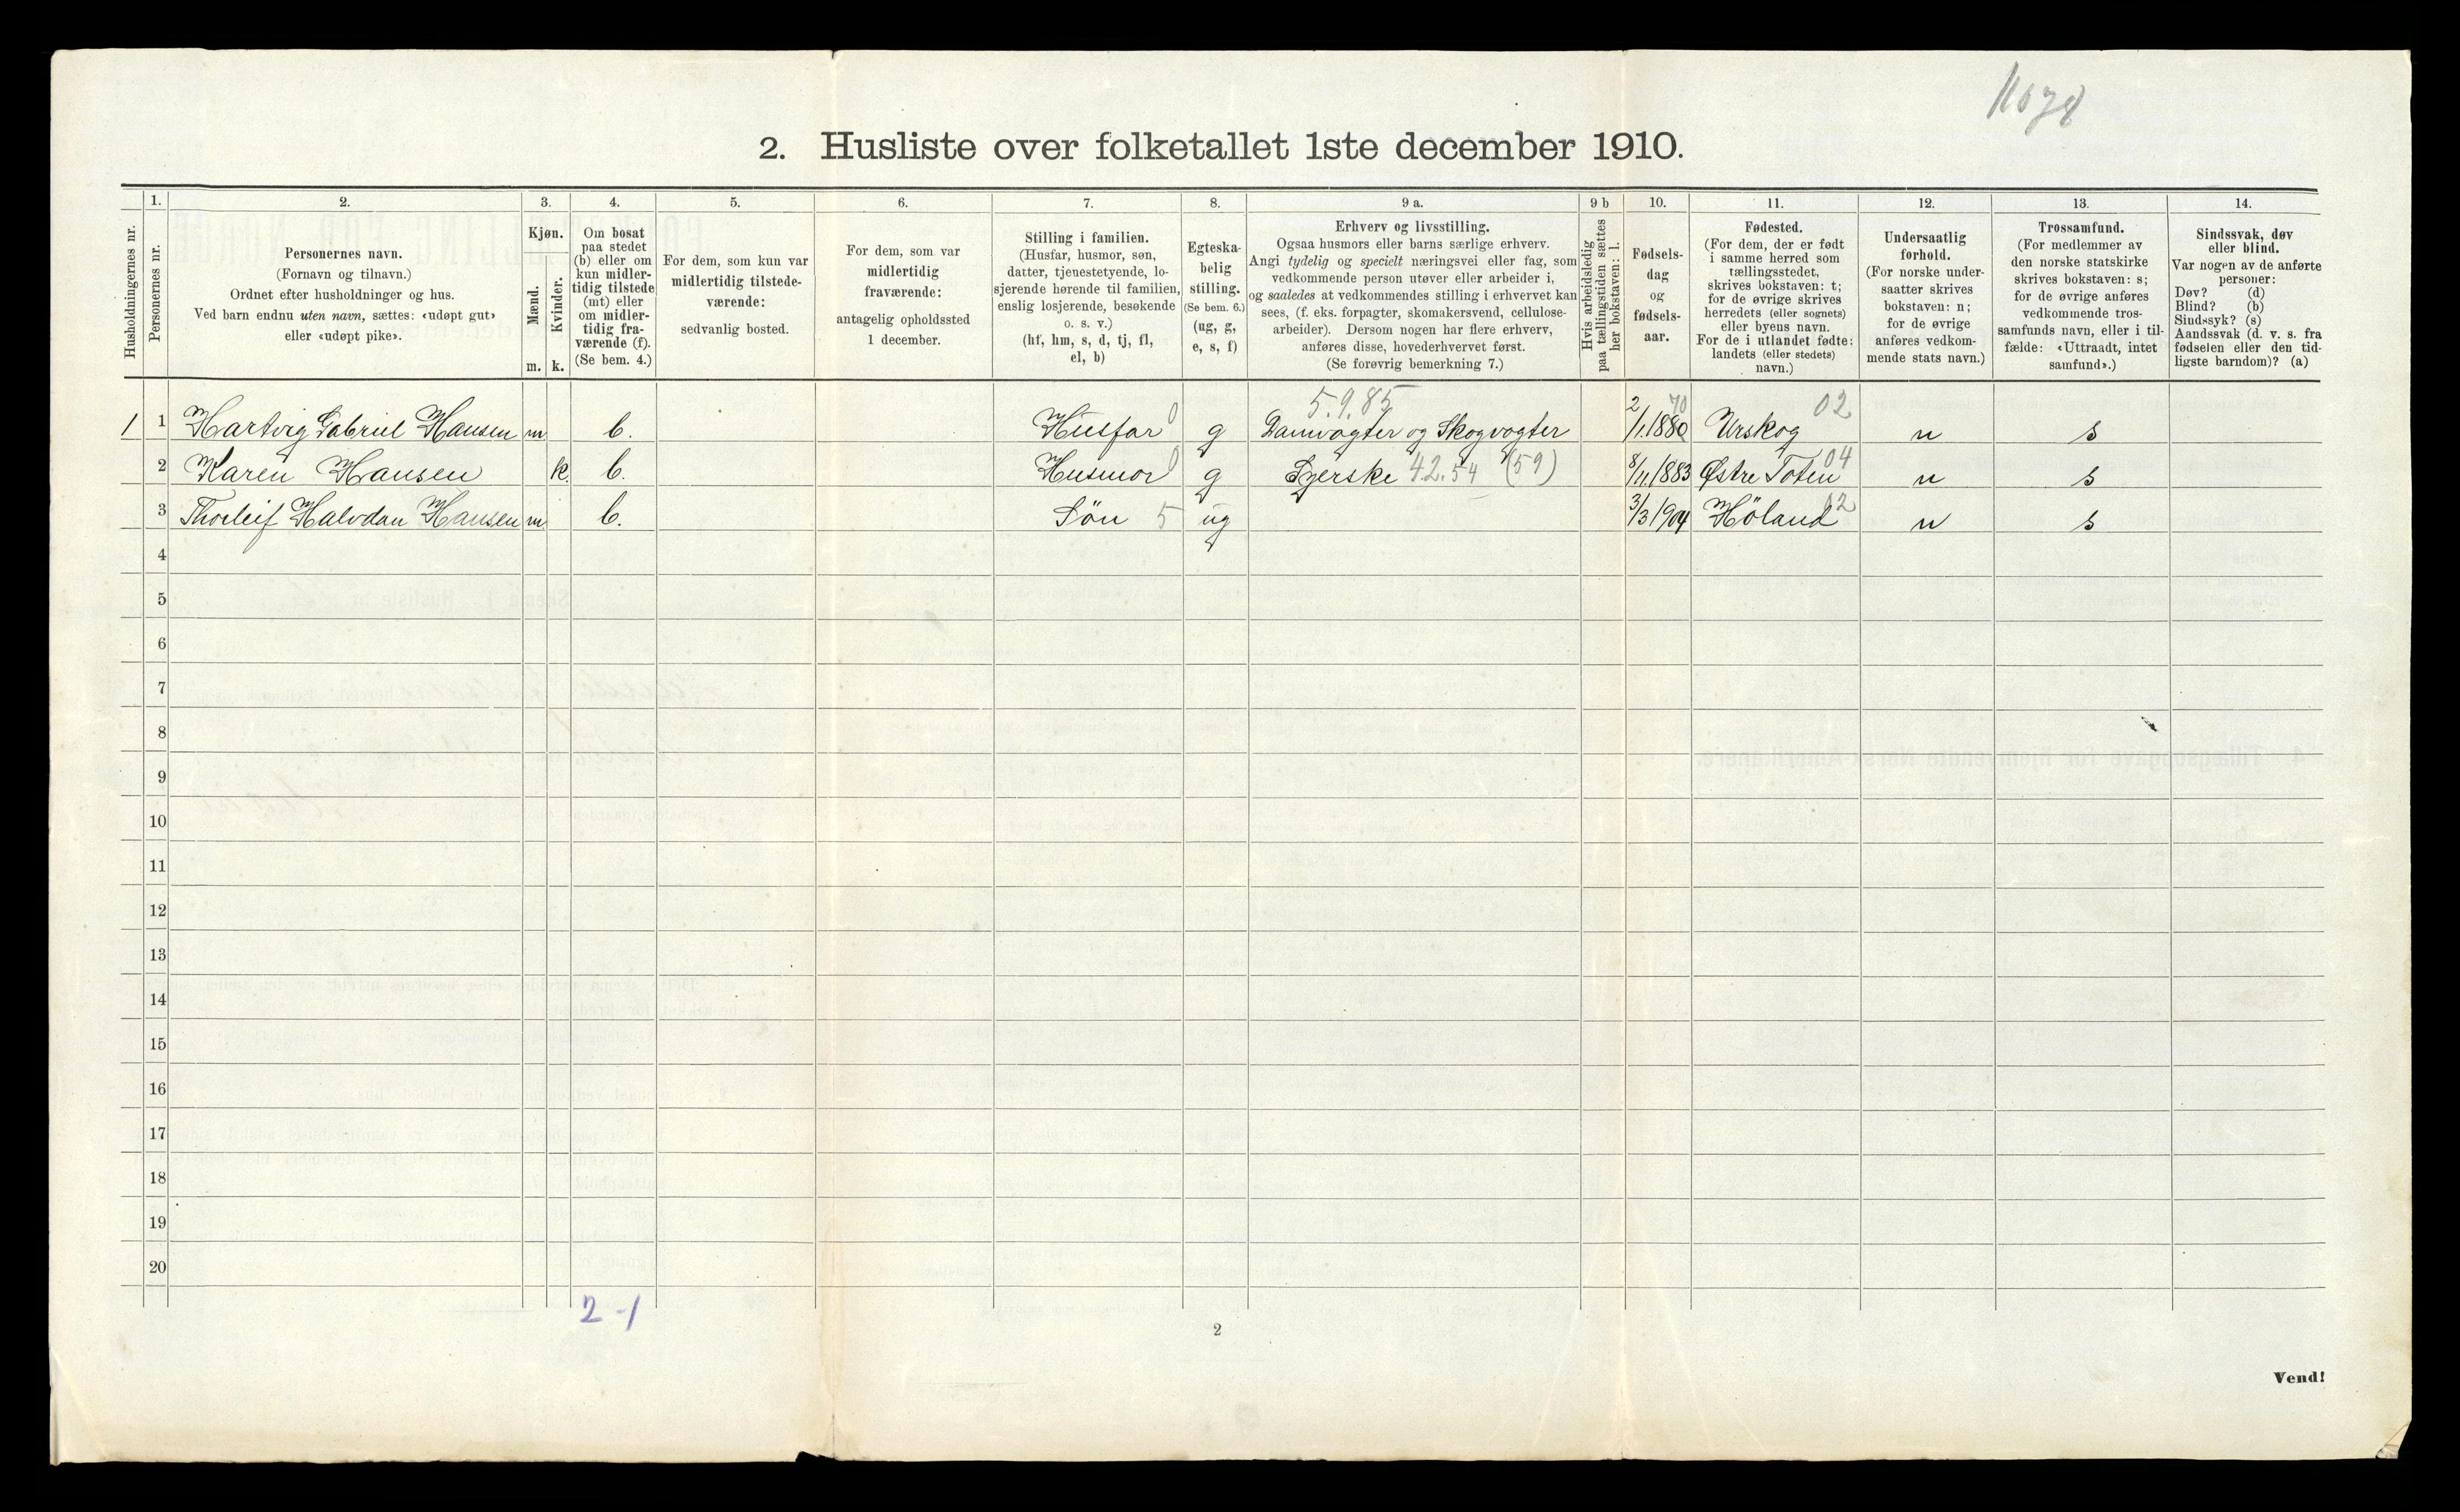 1078
2. Husliste over folketallet 1ste december 1910.
Husholdningernes nr.
1.
Personernes nr.
2.
Personernes navn.
(Fornavn og tilnavn.)
Ordnet efter husholdninger og hus.
Ved barn endnu uten navn, sættes: «udøpt gut»
eller «udøpt pike».
3.
Kjøn.
Mænd.
Kvinder.
m. k.
4.
Om bosat
paa stedet
(b) eller om
kun midler-
tidig tilstede
(mt) eller
om midler-
tidig fra-
værende (f).
(Se bem. 4.)
5.
For dem, som kun var
midlertidig tilstede-
værende:
sedvanlig bosted.
6.
For dem, som var
midlertidig
fraværende:
antagelig opholdssted
1 december.
7.
Stilling i familien.
(Husfar, husmor, søn,
datter, tjenestetyende, lo-
sjerende hørende til familien,
enslig losjerende, besøkende
o. s. v.)
(hf, hm, s, d, tj, fl,
el, b)
8.
Egteska-
belig
stilling.
(Se bem. 6.)
(ug, g,
e, s, f)
9 a.
Erhverv og livsstilling.
Ogsaa husmors eller barns særlige erhverv.
Angi tydelig og specielt næringsvei eller fag, som
vedkommende person utøver eller arbeider i,
og saaledes at vedkommendes stilling i erhvervet kan
sees, (f. eks. forpagter, skomakersvend, cellulose-
arbeider). Dersom nogen har flere erhverv,
anføres disse, hovederhvervet først.
(Se forøvrig bemerkning 7.)
9 b
Hvis arbeidsledig
paa tællingstiden sættes
her bokstaven: l.
10.
Fødsels-
dag
og
fødsels-
aar.
11.
Fødested.
(For dem, der er født
i samme herred som
tællingsstedet,
skrives bokstaven: t;
for de øvrige skrives
herredets (eller sognets)
eller byens navn.
For de i utlandet fødte:
landets (eller stedets)
navn.)
12.
Undersaatlig
forhold.
(For norske under-
saatter skrives
bokstaven: n;
for de øvrige
anføres vedkom-
mende stats navn.)
13.
Trossamfund.
(For medlemmer av
den norske statskirke
skrives bokstaven: s;
for de øvrige anføres
vedkommende tros-
samfunds navn, eller i til-
fælde: «Uttraadt, intet
samfund».)
14.
Sindssvak, døv
eller blind.
Var nogen av de anførte
personer:
Døv? (d)
Blind? (b)
Sindssyk? (s)
Aandssvak (d. v. s. fra
fødselen eller den tid-
ligste barndom)? (a)
5.9.85 70 02
1 1 Hartvig Gabriel Hansen m b. Husfar 0 g Damvogter og Skogvogter 2/1 1880 Urskog n s
2 Karen Hansen k. b. Husmor 0 g Syerske 42.54 (59) 8/11 1883 Østre Toten 04 n s
3 Thorleif Halvdan Hansen m b. Søn 5 ug 3/3 1904 Höland 02 n s
4
5
6
7
8
9
10
11
12
13
14
15
16
17
18
19
20
2-1
2
Vend!